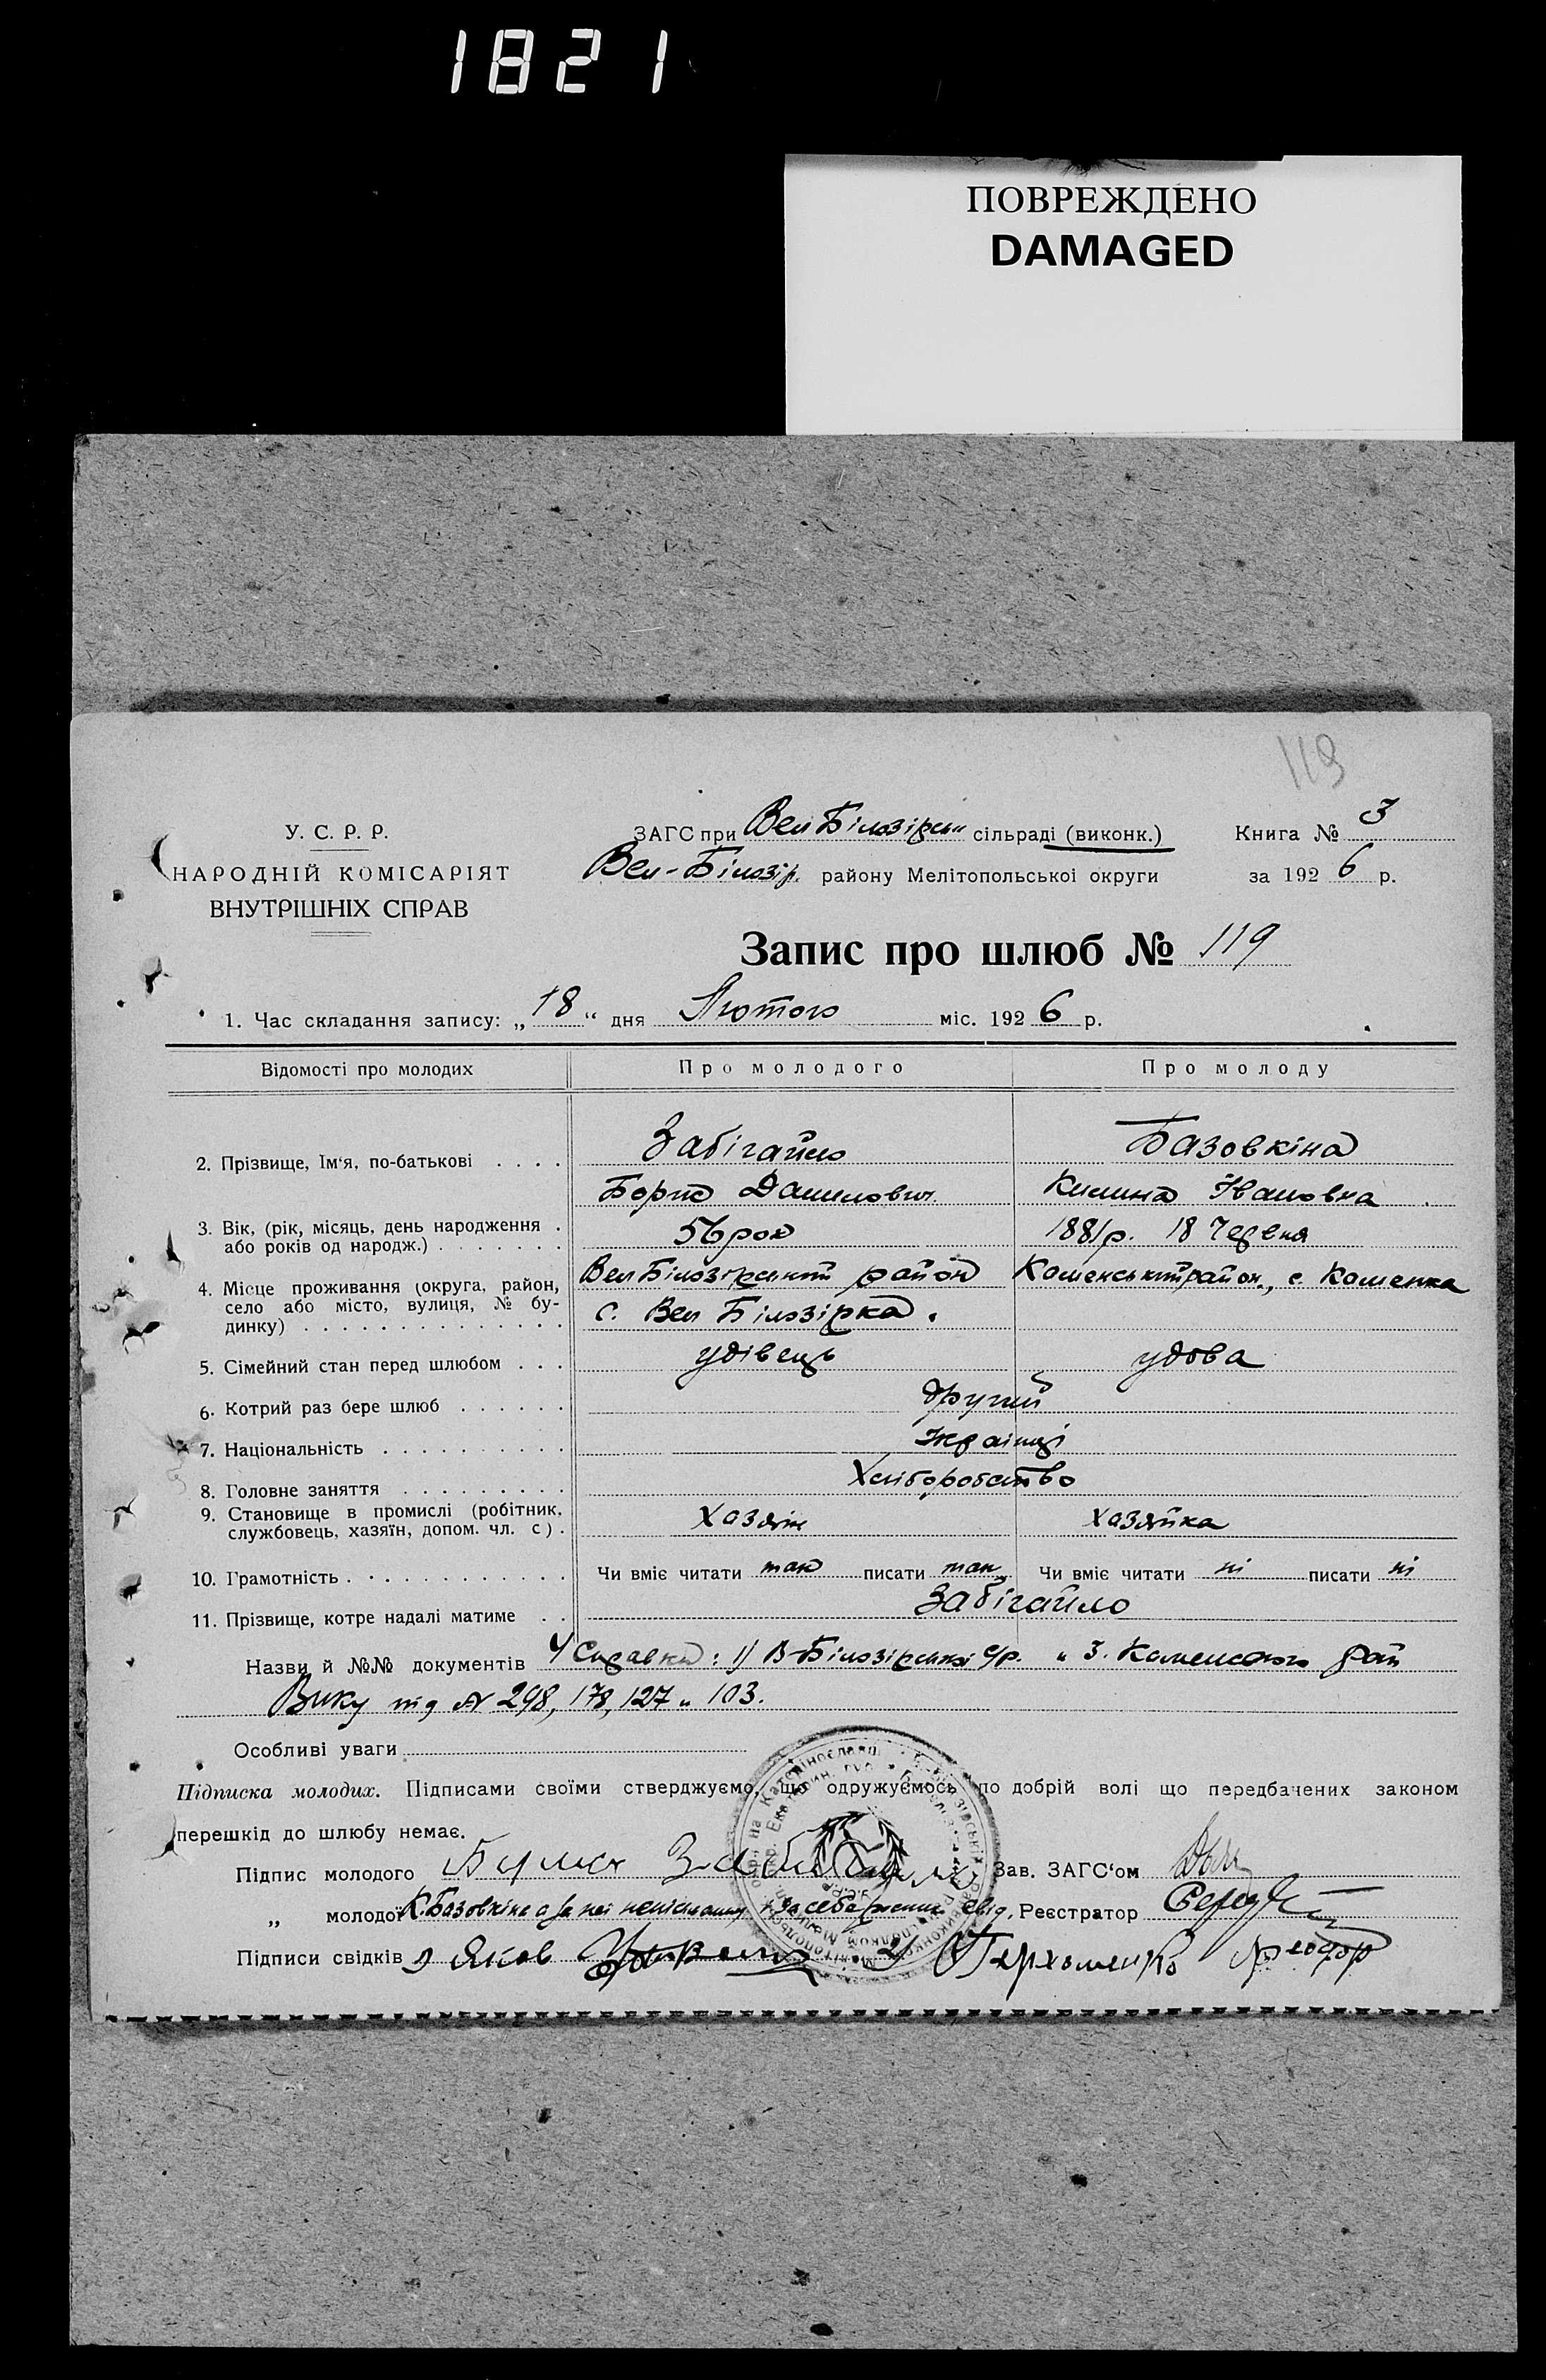 1821
ПОВРЕЖДЕНО
DAMAGED
119
У. С. Р. Р.
НАРОДНІЙ КОМІСАРІЯТ
ВНУТРІШНІХ СПРАВ
ЗАГС при Вел Білозірськ сільраді (виконк.) Книга № 3
Вел-Білозір. району Мелітопольської округи за 1926 р.
Запис про шлюб № 119
1. Час складання запису: „18“ дня Лютого міс. 1926 р.
Відомості про молодих Про молодого Про молоду
2. Прізвище, Ім‘я, по-батькові . . . . Забігайло Базовкіна
Борис Данилович Килина Івановна
3. Вік, (рік, місяць, день народження . 56 рок 1881 р. 18 Червня
або років од народж.) . . . . . . .
4. Місце проживання (округа, район, Вел Білозірський район Каменський район, с. Каменка
село або місто, вулиця, № бу- с. Вел Білозірка.
динку) . . . . . . . . . . . . . .
5. Сімейний стан перед шлюбом . . . удівець удова
6. Котрий раз бере шлюб . . . . . . другий
7. Національність . . . . . . . . . . Українці
8. Головне заняття . . . . . . . . . Хліборобство
9. Становище в промислі (робітник, Хазяїн хазяйка
службовець, хазяїн, допом. чл. с) .
10. Грамотність . . . . . . . . . . . . Чи вміє читати так писати так Чи вміє читати ні писати ні
11. Прізвище, котре надалі матиме . . Забігайло
Назви й №№ документів 4 Справки: 1) В-Білозірської с/р. и 3. Каменского Рай
Вику під № 298, 178, 127 и 103.
Особливі уваги
Підписка молодих. Підписами своїми стверджуємо, що одружуємось по добрій волі що передбачених законом
перешкід до шлюбу немає.
Підпис молодого Зав. ЗАГС‘ом
„ молодої К. Базовкіна а за неї неписьменну і за себе свід. Реєстратор
Підписи свідків Яков 2) Пархоменко Феодор